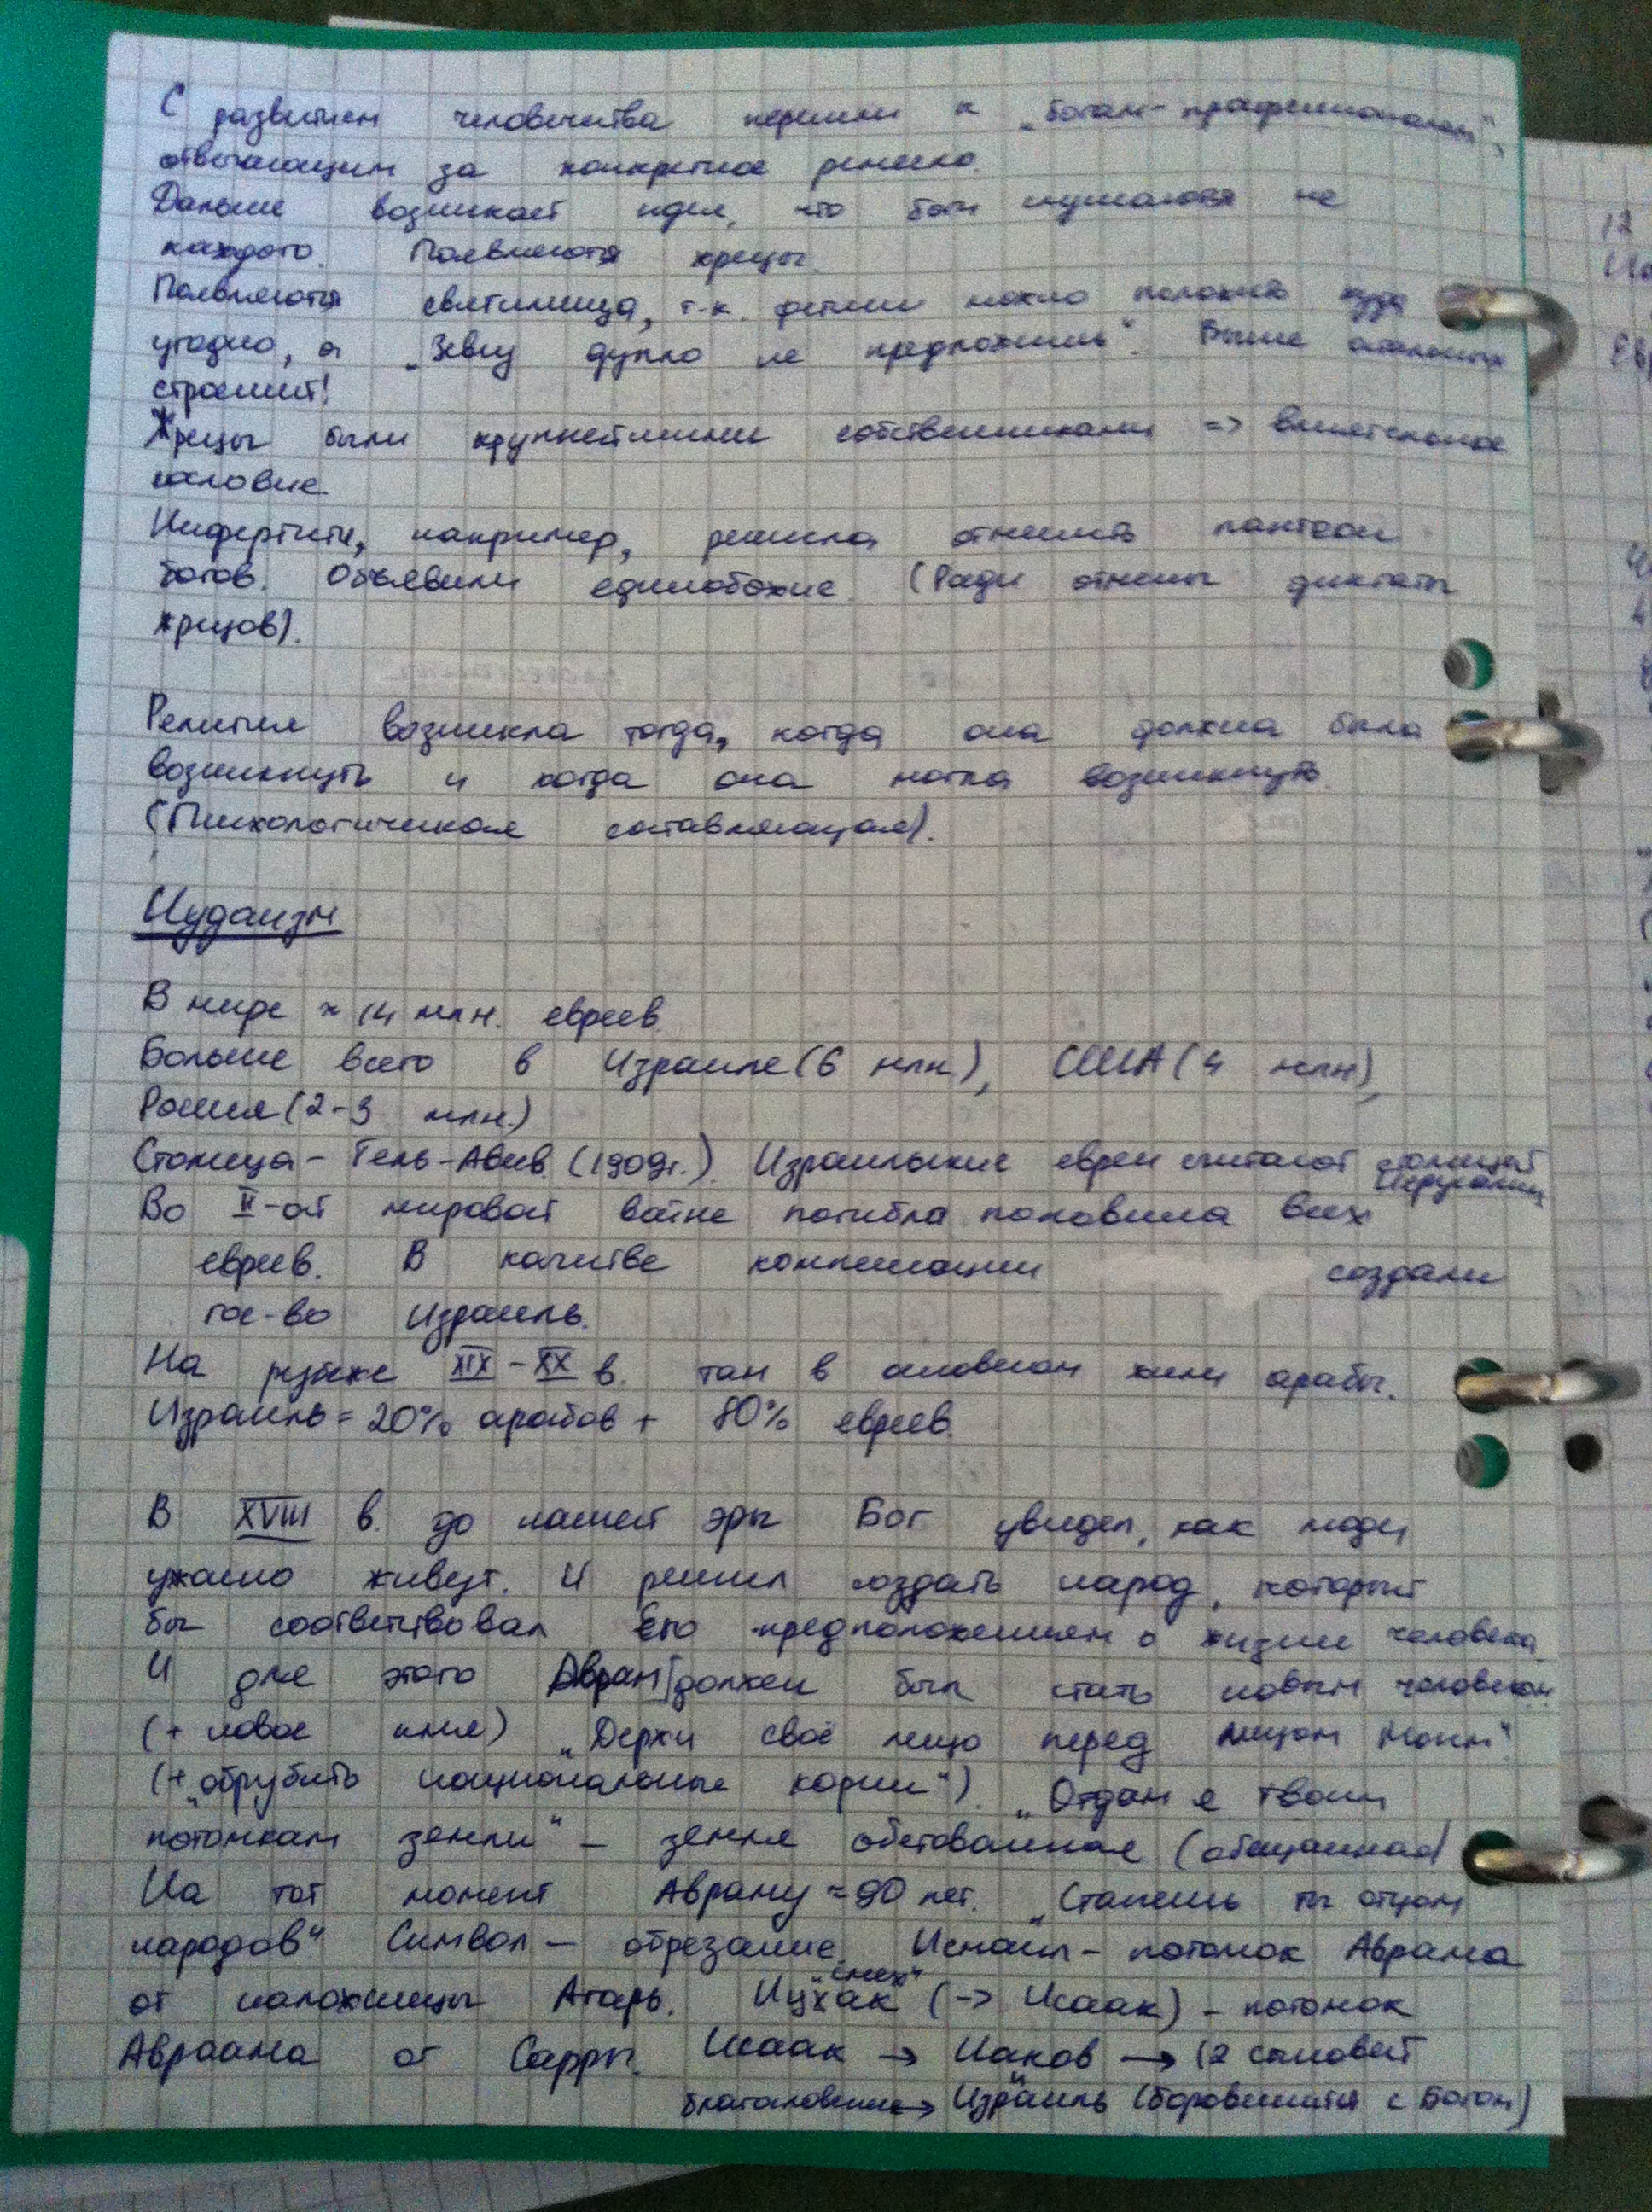 С развитием человечества перешли к „богам-профессионалам",
отвечающим за конкретное ремесло.
Дальше возникает идея, что боги слушаются не
каждого. Появляются жрецы.
Появляются святилища, т.к. фетиш можно положить куда
угодно, а „Зевсу дупло не предложишь". Выше остальных
строений!
Жрецы были крупнейшими собственниками => влиятельное
сословие.
Нифертити, например, решила отменить пантеон
богов. Объявили единобожие (Ради отмены диктата
жрецов).
Религия возникла тогда, когда она должна была
возникнуть и когда она могла возникнуть.
(Психологическая составляющая).
Иудаизм
В мире ≈ 14 млн. евреев.
Больше всего в Израиле (6 млн), США (4 млн),
Россия (2-3 млн.)
Столица - Тель-Авив (1909г.). Израильские евреи считают столицей
Иерусалим
Во II-ой мировой войне погибла половина всех
евреев. В качестве компенсации создали
гос-во Израиль.
На рубеже XIX - XX в. там в основном жили арабы.
Израиль = 20% арабов + 80% евреев.
В XVIII в. до нашей эры Бог увидел, как люди
ужасно живут. И решил создать народ, который
бы соответствовал Его предположениям о жизни человека
И для этого Аврам должен был стать новым человеком
(+ новое имя) „Держи своё лицо перед лицом Моим"
(+ „обрубить национальные корни"). „Отдам я твоим
потомкам земли" - земля обетованная (обещанная)
На тот момент Авраму ≈ 90 лет. „Станешь ты отцом
народов" Символ - обрезание. Исмаил - потомок Аврама
от наложницы Агарь. Ицхак „смех" (-> Исаак) - потомок
Авраама от Сарры. Исаак -> Иаков -> 12 сыновей
благословение -> Израиль (боровшийся с Богом)